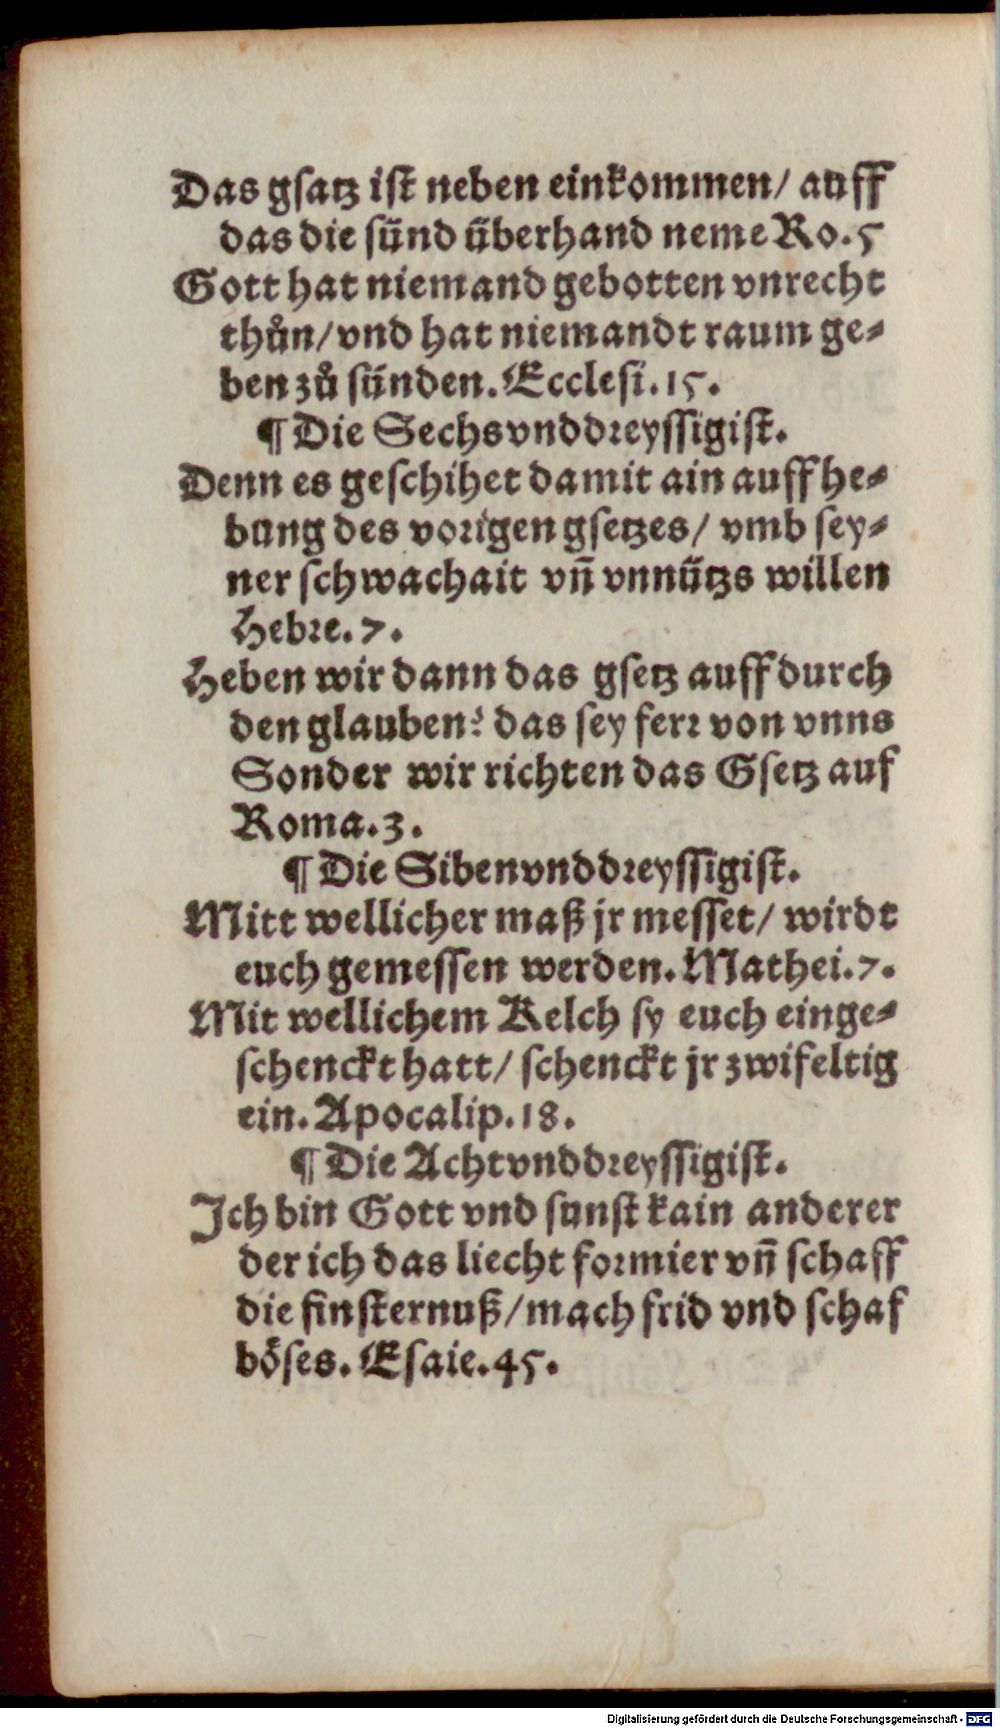 Das gsatz ist neben einkommen/ auff
das die sünd überhand neme Ro.5
Gott hat niemand gebotten vnrecht
thůn/vnd hat niemandt raum ge⸗
ben zů sünden. Ecclesi.15.
¶ Die Sechsvnddreyssigist.
Denn es geschihet damit ain auffhe⸗
bung des vorigen gsetzes/ vmb sey⸗
ner schwachait vn̄ vnnützs willen
Hebre.7.
Heben wir dann das gsetz auff durch
den glauben? das sey ferr von vnns
Sonder wir richten das Gsetz auf
Roma.3.
¶ Die Sibenvnddreyssigist.
Mitt wellicher maß jr messet/ wirdt
euch gemessen werden. Mathei.7.
Mit wellichem Kelch sy euch einge⸗
schenckt hatt/ schenckt jr zwifeltig
ein. Apocalip.18.
¶ Die Achtvnddreyssigist.
Ich bin Gott vnd sunst kain anderer
der ich das liecht formier vn̄ schaff
die finsternuß/mach frid vnd schaf
böses. Esaie.45.
Digitalisierung gefördert durch die Deutsche Forschungsgemeinschaft - DFG